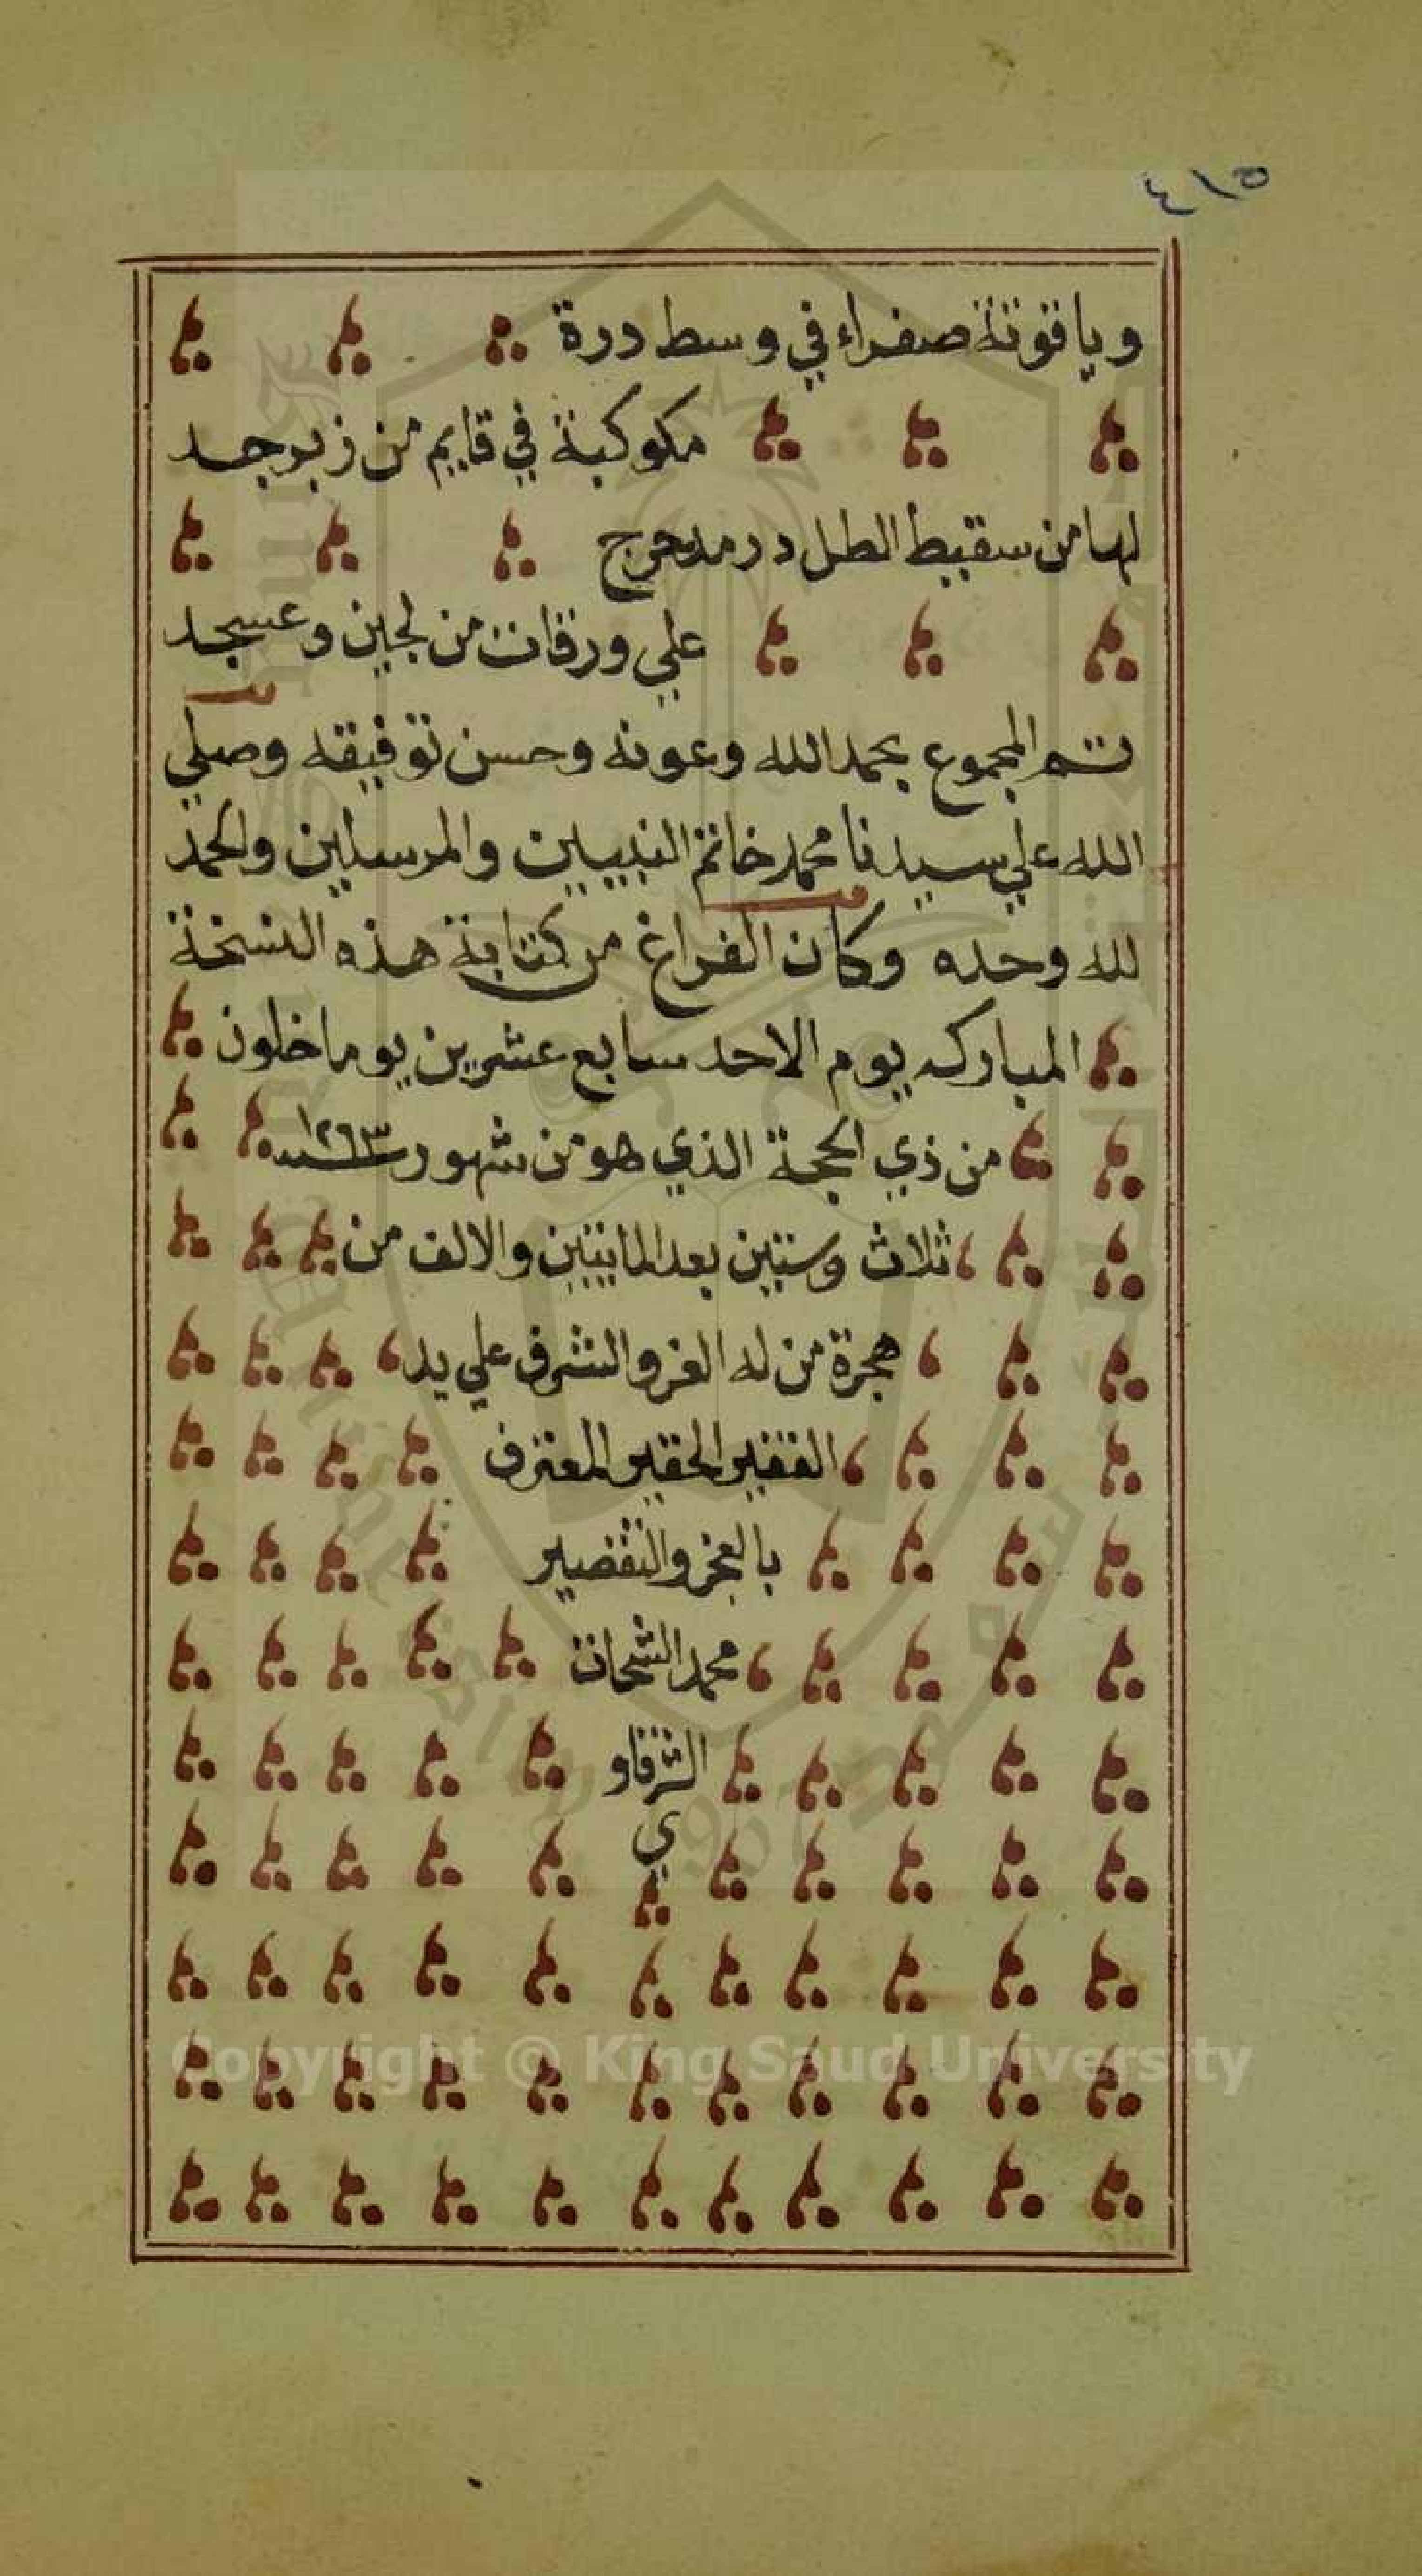 ٤١٥
وياقوتة صفراء في وسط درة
مكوكبة في قايم من زبرجد
لها من سقيط الطل در مدحرج
علي ورقات من لجين وعسجد
تم المجموع بحمد الله وعونه وحسن توفيقه وصلي
الله علي سيدنا محمد خاتم النبيين والمرسلين والحمد
لله وحده وكان الفراغ من كتابة هذه النسخة
المباركه يوم الاحد سابع عشرين يوما خلون
من ذي الحجة الذي هو من شهور سنة ١٢٦٣
ثلاث وستين بعد المايتين والالف من
هجرة من له العز والشرف علي يد
الفقير الحقير المعترف
بالعجز والتقصير
محمد الشحات
الشرقاو
ي
Copyright © King Saud University